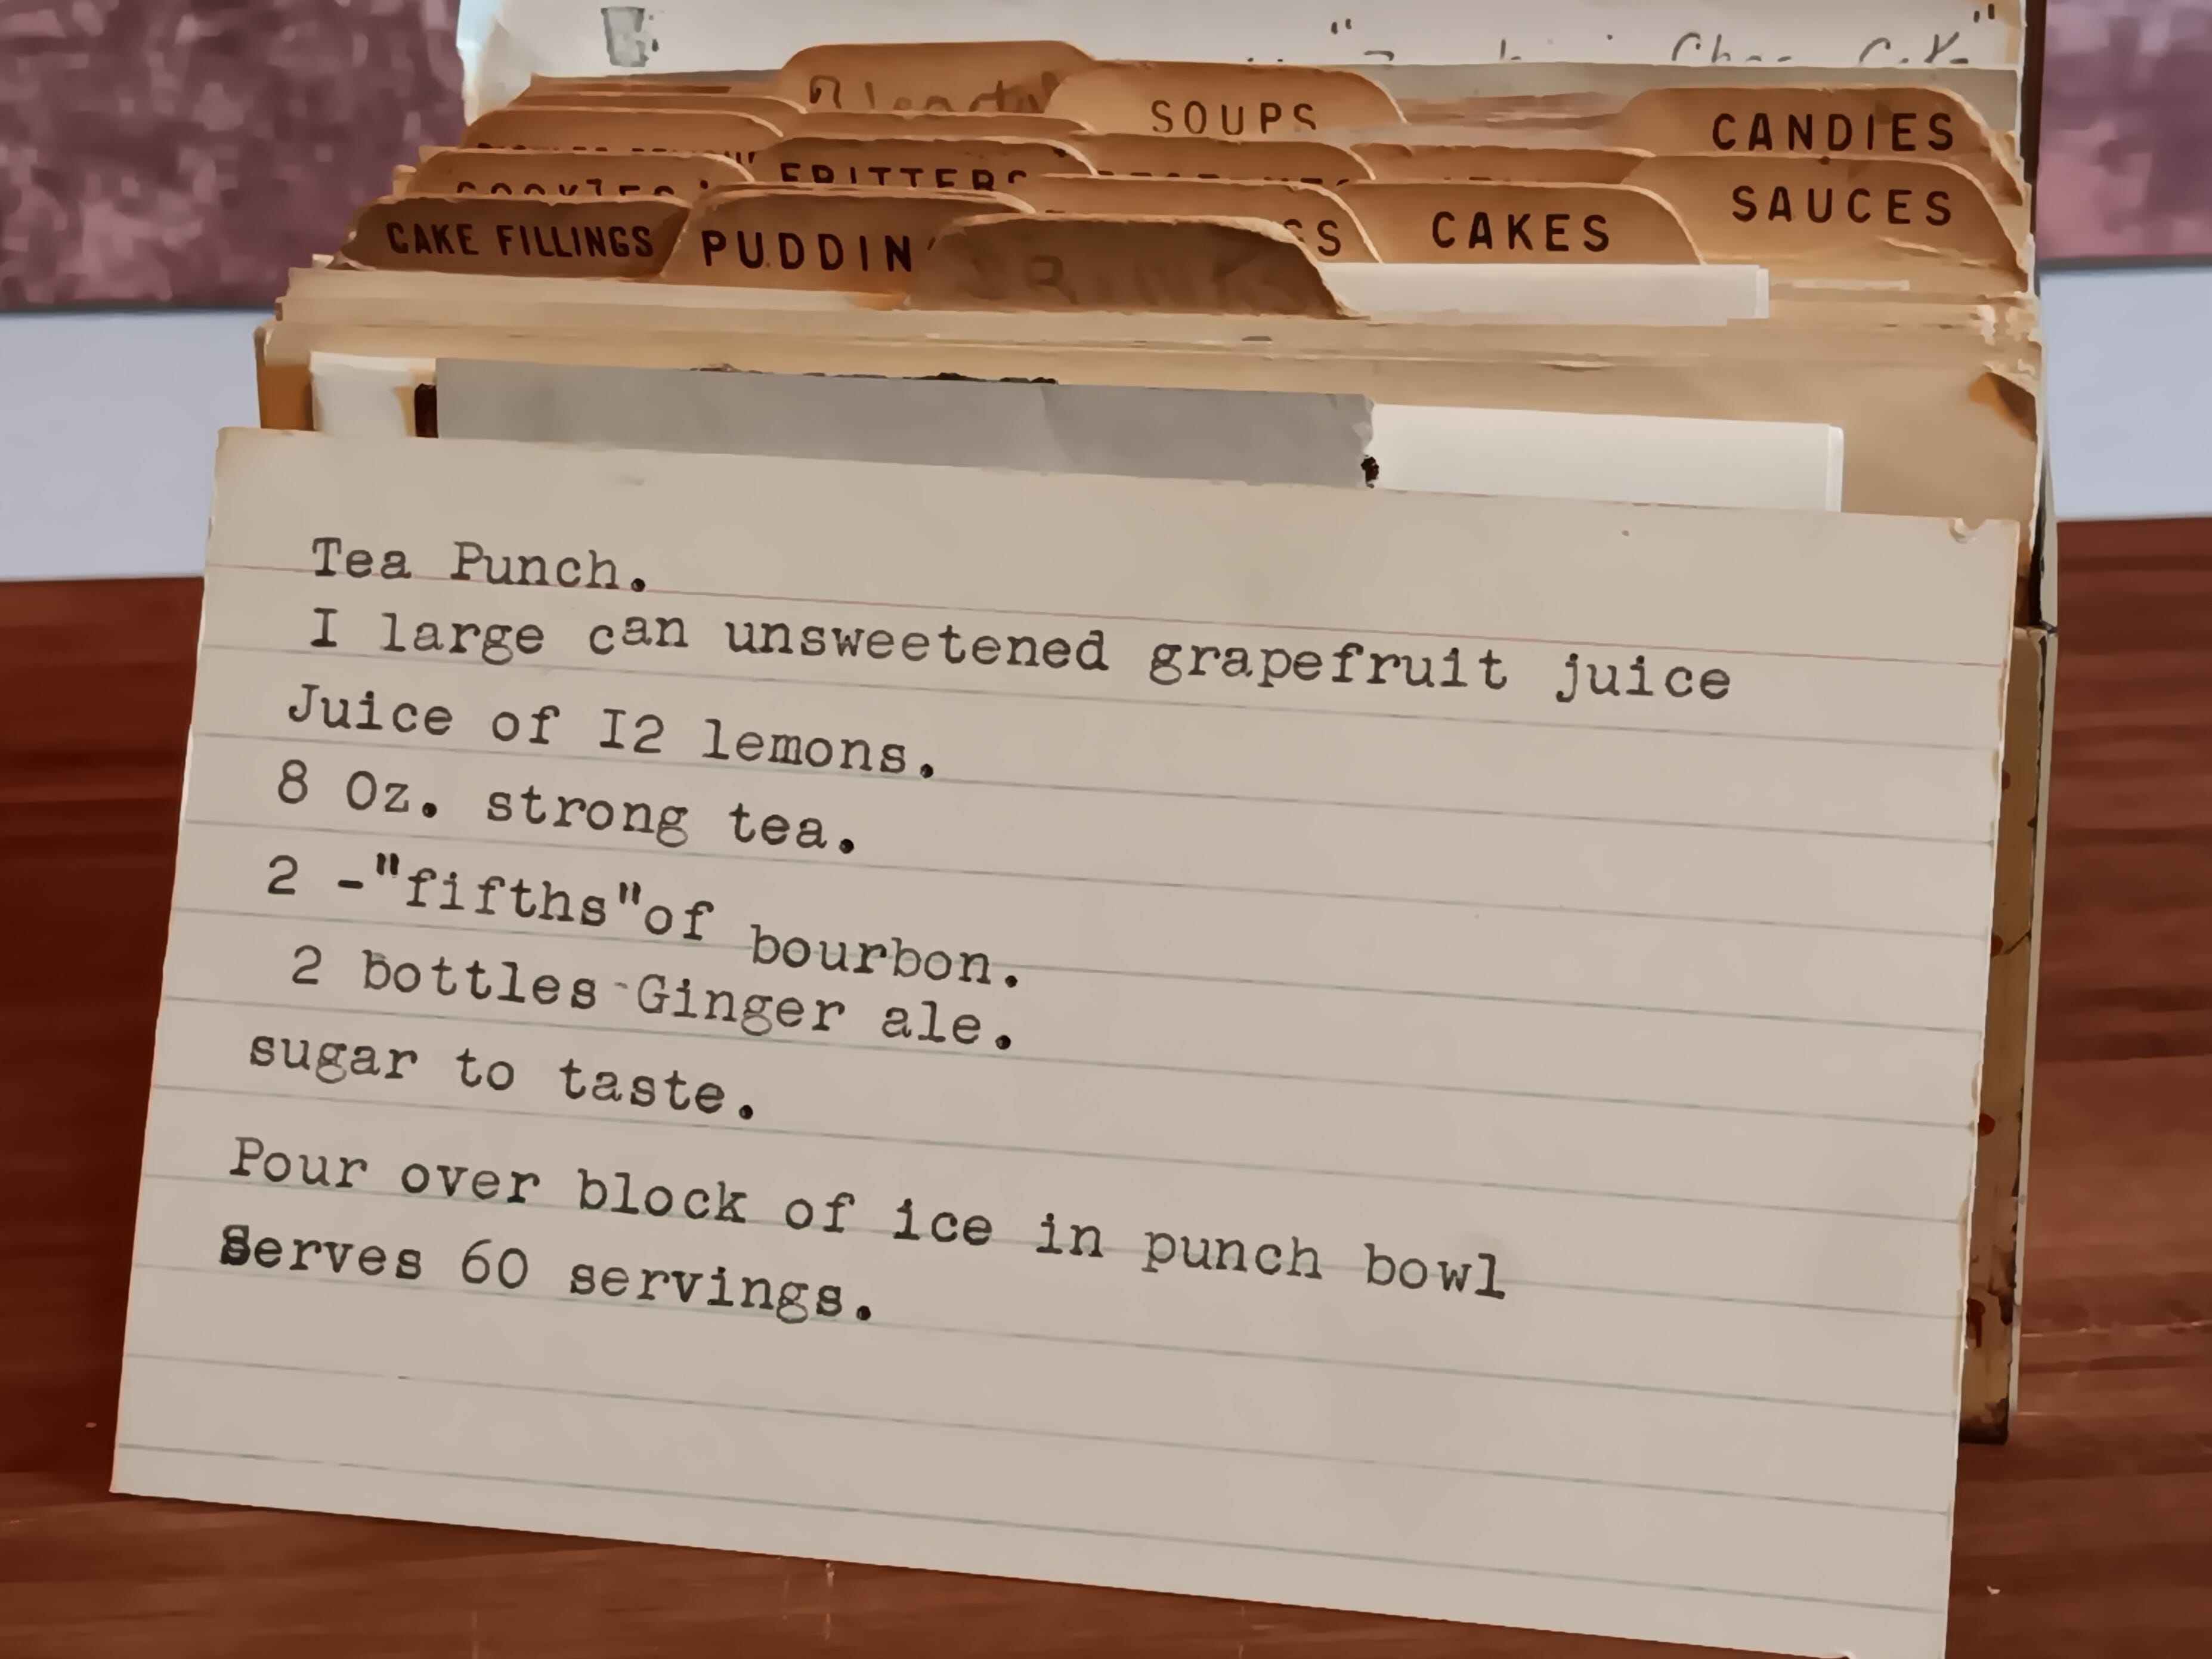 SOUPS
CANDIES
FRITTERS
COOKIES
SAUCES
CAKE FILLINGS
PUDDIN
CAKES
DRINKS
Tea Punch.
I large can unsweetened grapefruit juice
Juice of I2 lemons.
8 Oz. strong tea.
2 -"fifths"of bourbon.
2 bottles-Ginger ale.
sugar to taste.
Pour over block of ice in punch bowl
Serves 60 servings.